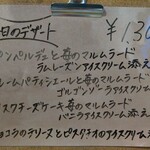 日のデザート ¥1,30
ンペルデュと苺のマルムラード
ラムレーズンアイスクリーム添え
ームパティシエールと苺のマルムラード
ゴルゴンゾーラアイスクリーム
スクチーズケーキ 苺のマルムラード
バニラアイスクリーム添え
ョコラのテリーヌとピスタチオのアイスクリーム